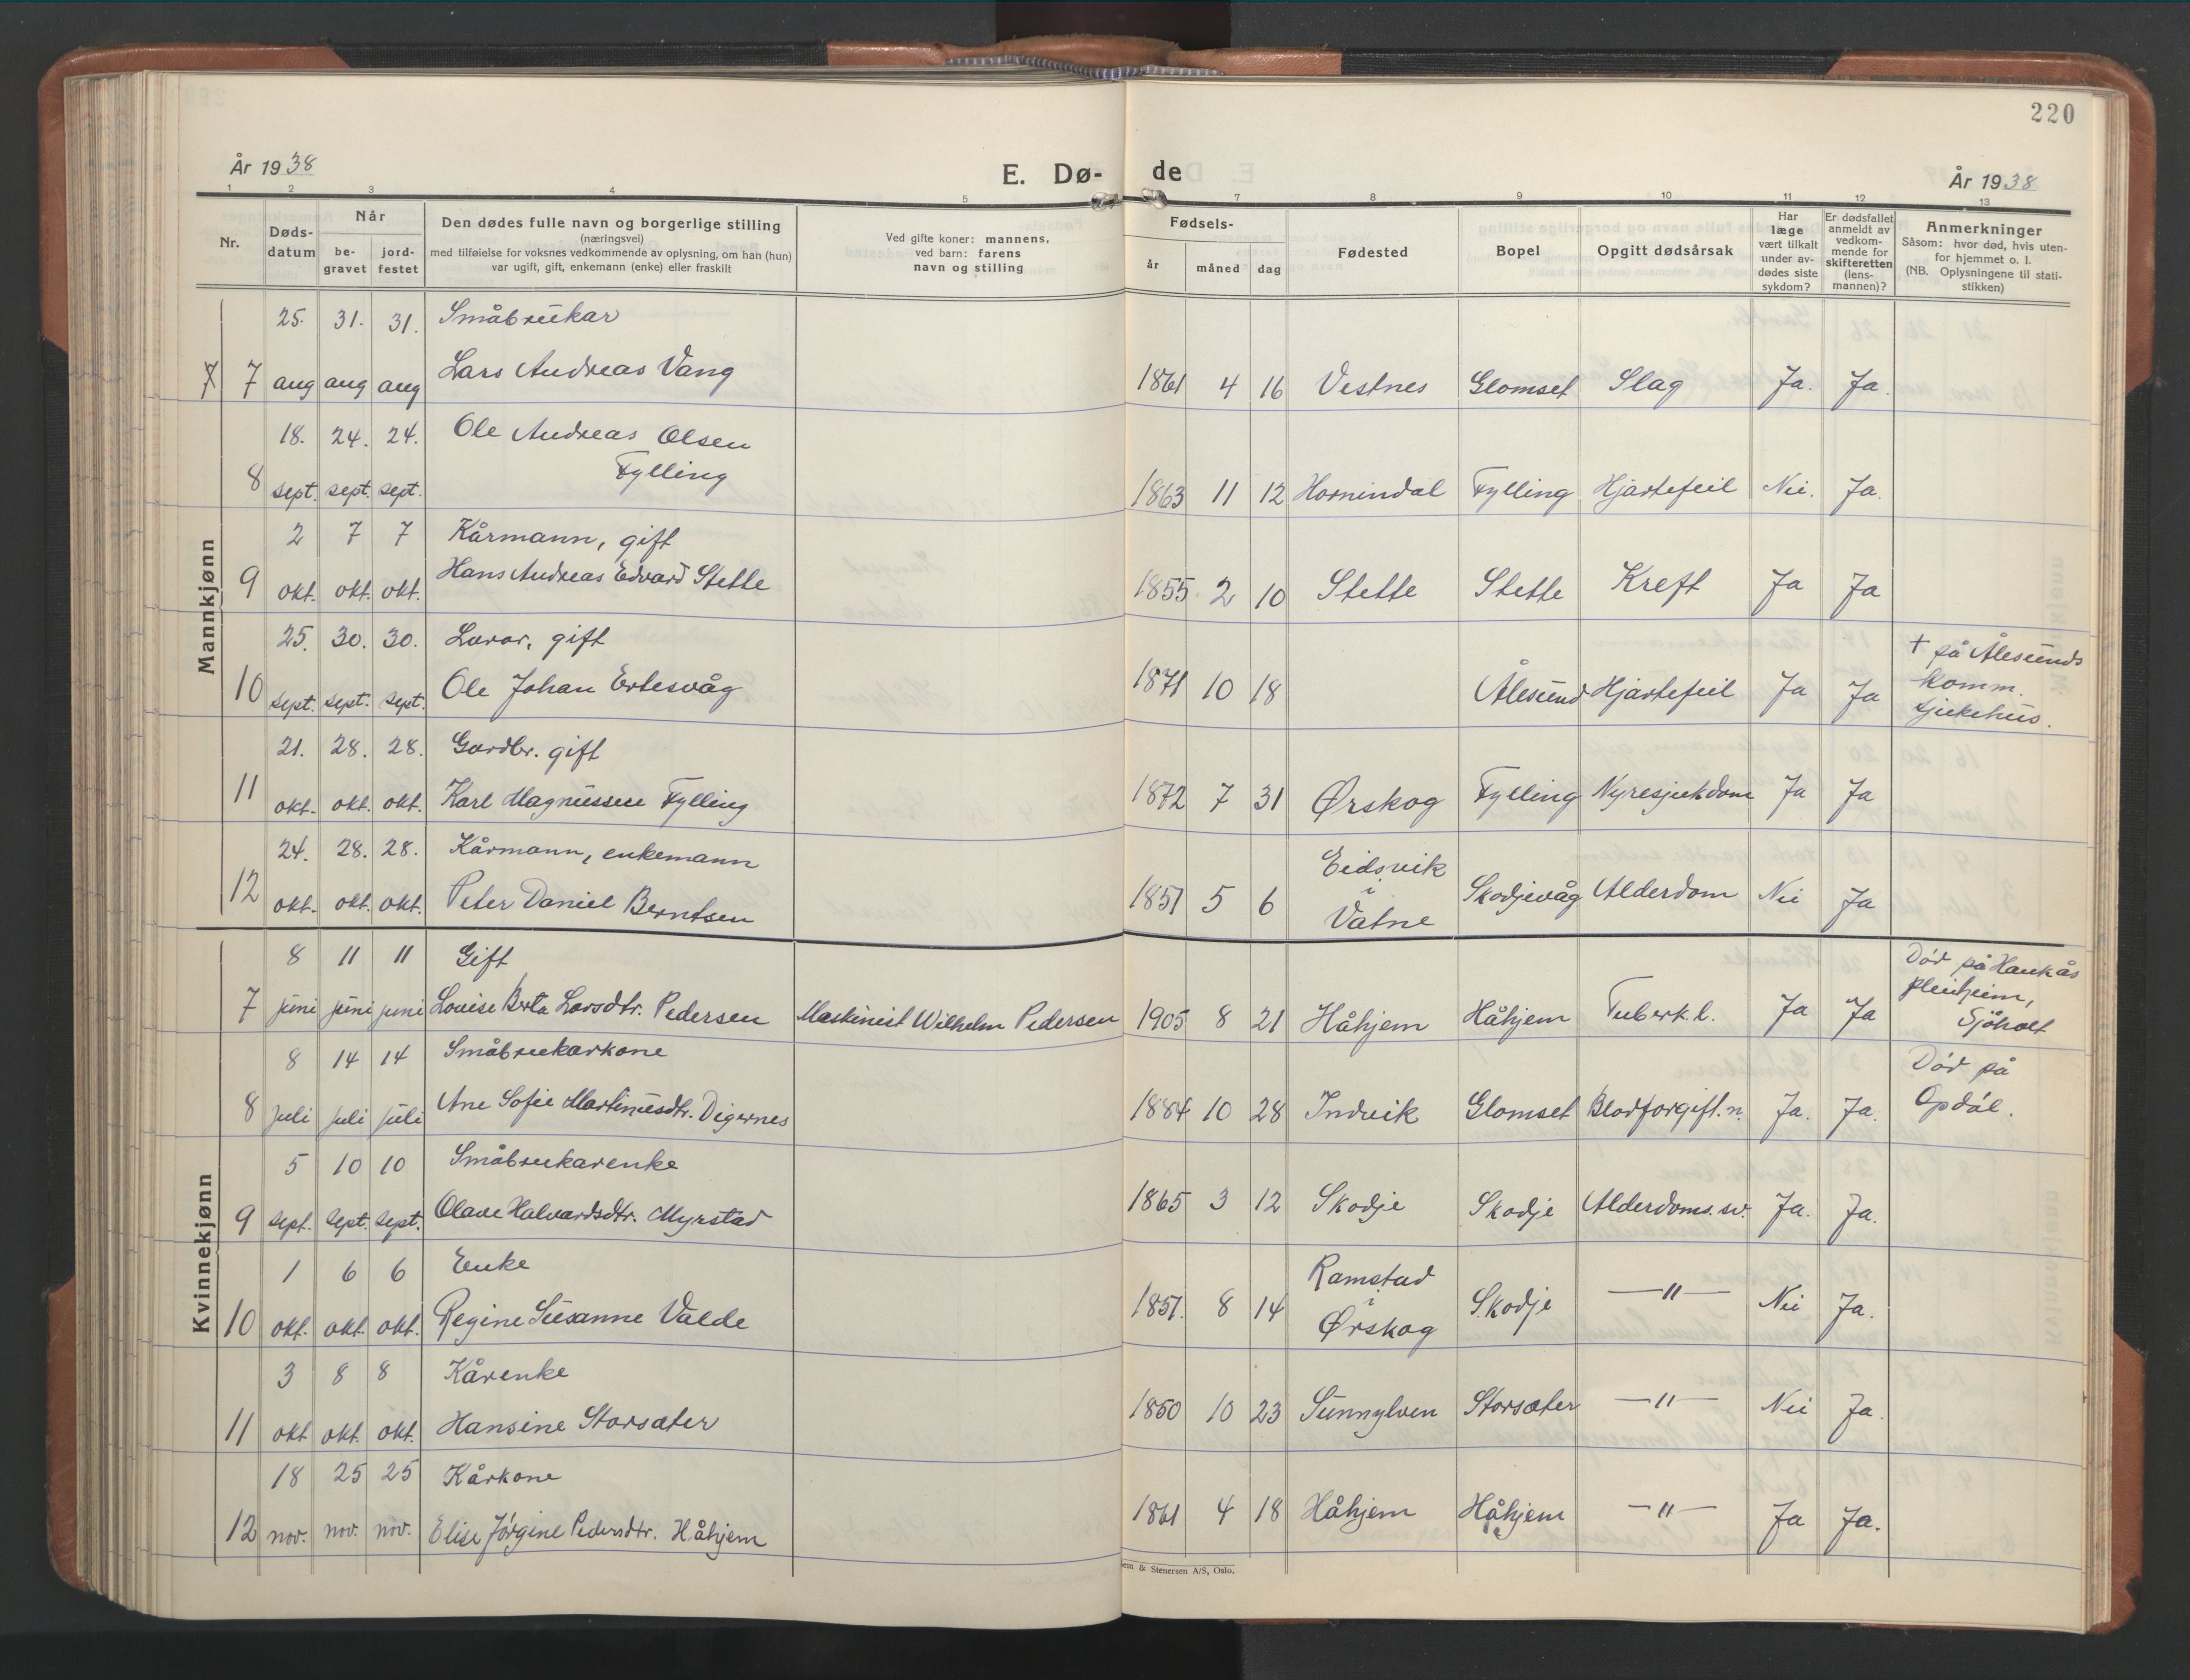 220
År 1938
E. Dø-
de
År 1938
1 2 3 4 5 7 8 9 10 11 12 13
Nr.
Døds-
datum
Når
be-
gravet
jord-
festet
Den dødes fulle navn og borgerlige stilling
(næringsvei)
med tilføielse for voksnes vedkommende av oplysning, om han (hun)
var ugift, gift, enkemann (enke) eller fraskilt
Ved gifte koner: mannens,
ved barn: farens
navn og stilling
Fødsels-
år
måned
dag
Fødested
Bopel
Opgitt dødsårsak
Har
læge
vært tilkalt
under av-
dødes siste
sykdom?
Er dødsfallet
anmeldt av
vedkom-
mende for
skifteretten
(lens-
mannen)?
Anmerkninger
Såsom: hvor død, hvis uten-
for hjemmet o. l.
(NB. Oplysningene til stati-
stikken)
Mannkjønn
25. 31. 31. Småbrukar
7 7 aug aug aug Lars Andreas Vang 1861 4 16 Vestnes Glomset Slag Ja. Ja.
18. 24. 24. Ole Andreas Olsen
8 sept. sept. sept. Fylling 1863 11 12 Hornindal Fylling Hjartefeil Nei. Ja.
2 7 7 Kårmann, gift
9 okt. okt. okt. Hans Andreas Edvard Stette 1855 2 10 Stette Stette Kreft Ja Ja
25. 30. 30. Lærar, gift
10 sept. sept. sept. Ole Johan Ertesvåg 1871 10 18 Ålesund Hjartefeil Ja Ja
+ på Ålesunds
komm.
sjukehus.
21. 28. 28. Gardbr. gift
11 okt. okt. okt. Karl Magnussen Fylling 1872 7 31 Ørskog Fylling Nyresjukdom Ja Ja
24. 28. 28. Kårmann, enkemann
12 okt. okt. okt. Peter Daniel Berntsen 1851 5 6
Eidsvik
i
Vatne
Skodjevåg Alderdom Nei Ja
Kvinnekjønn
8 11 11 Gift
7 juni juni juni Louise Berta Larsdtr. Pedersen Maskinist Wilhelm Pedersen 1905 8 21 Håhjem Håhjem Tuberk.l. Ja Ja
Död på Haukås
pleiheim,
Sjöholt
8 14 14 Småbrukarkone
8 juli juli juli Ane Sofie Martinusdtr. Digernes 1884 10 28 Indvik Glomset Blodforgift.n. Ja. Ja.
Död på
Opdöl.
5 10 10 Småbrukarenke
9 sept. sept. sept. Olave Halvardsdtr. Myrstad 1865 3 12 Skodje Skodje Alderdoms.sv. Ja. Ja.
1 6 6 Enke
10 okt. okt. okt. Regine Susanne Valde 1851. 8 14
Ramstad
i
Ørskog
Skodje —"— Nei Ja.
3 8 8 Kårenke
11 okt okt. okt. Hansine Storsæter 1850 10 23 Sunnylven Storsæter —"— Nei Ja.
18 25 25 Kårkone
12 nov. nov. nov. Elise Jörgine Pedersdtr. Håhjem 1861 4 18 Håhjem Håhjem —"— Ja Ja.
em & Stenersen A/S, Oslo.